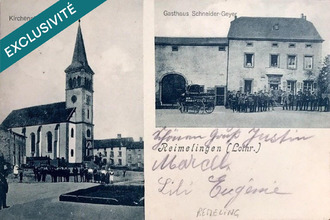 EXCLUSIVITÉ
Gasthaus Schneider-Geyer
Schönen Gruß Justin
Reimelingen (Lothr.)
Marcelle
Lili Eugénie
REMELING